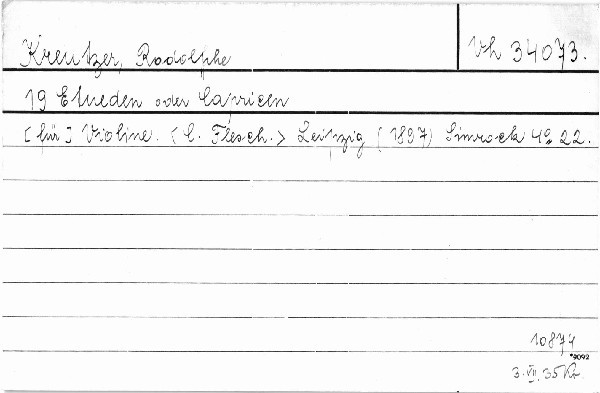 Kreutzer, Rodolphe
Vh 34073.
19 Etueden oder Capricen
[für] Violine. <C. Flesch.> Leipzig (1897) Simrock 4° 22.
10874
*9092
3. VII. 35